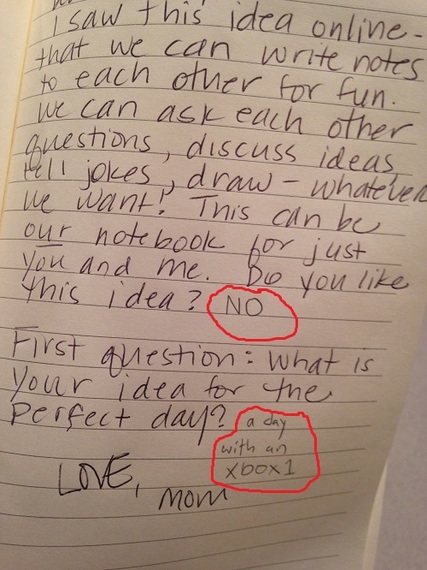 I saw this idea online -
that we can write notes
to each other for fun.
We can ask each other
questions, discuss ideas
tell jokes, draw - whatever
we want! This can be
our notebook for just
you and me. Do you like
this idea? NO
First question: What is
your idea for the
perfect day? a day
with an
xbox1
LOVE,
mom